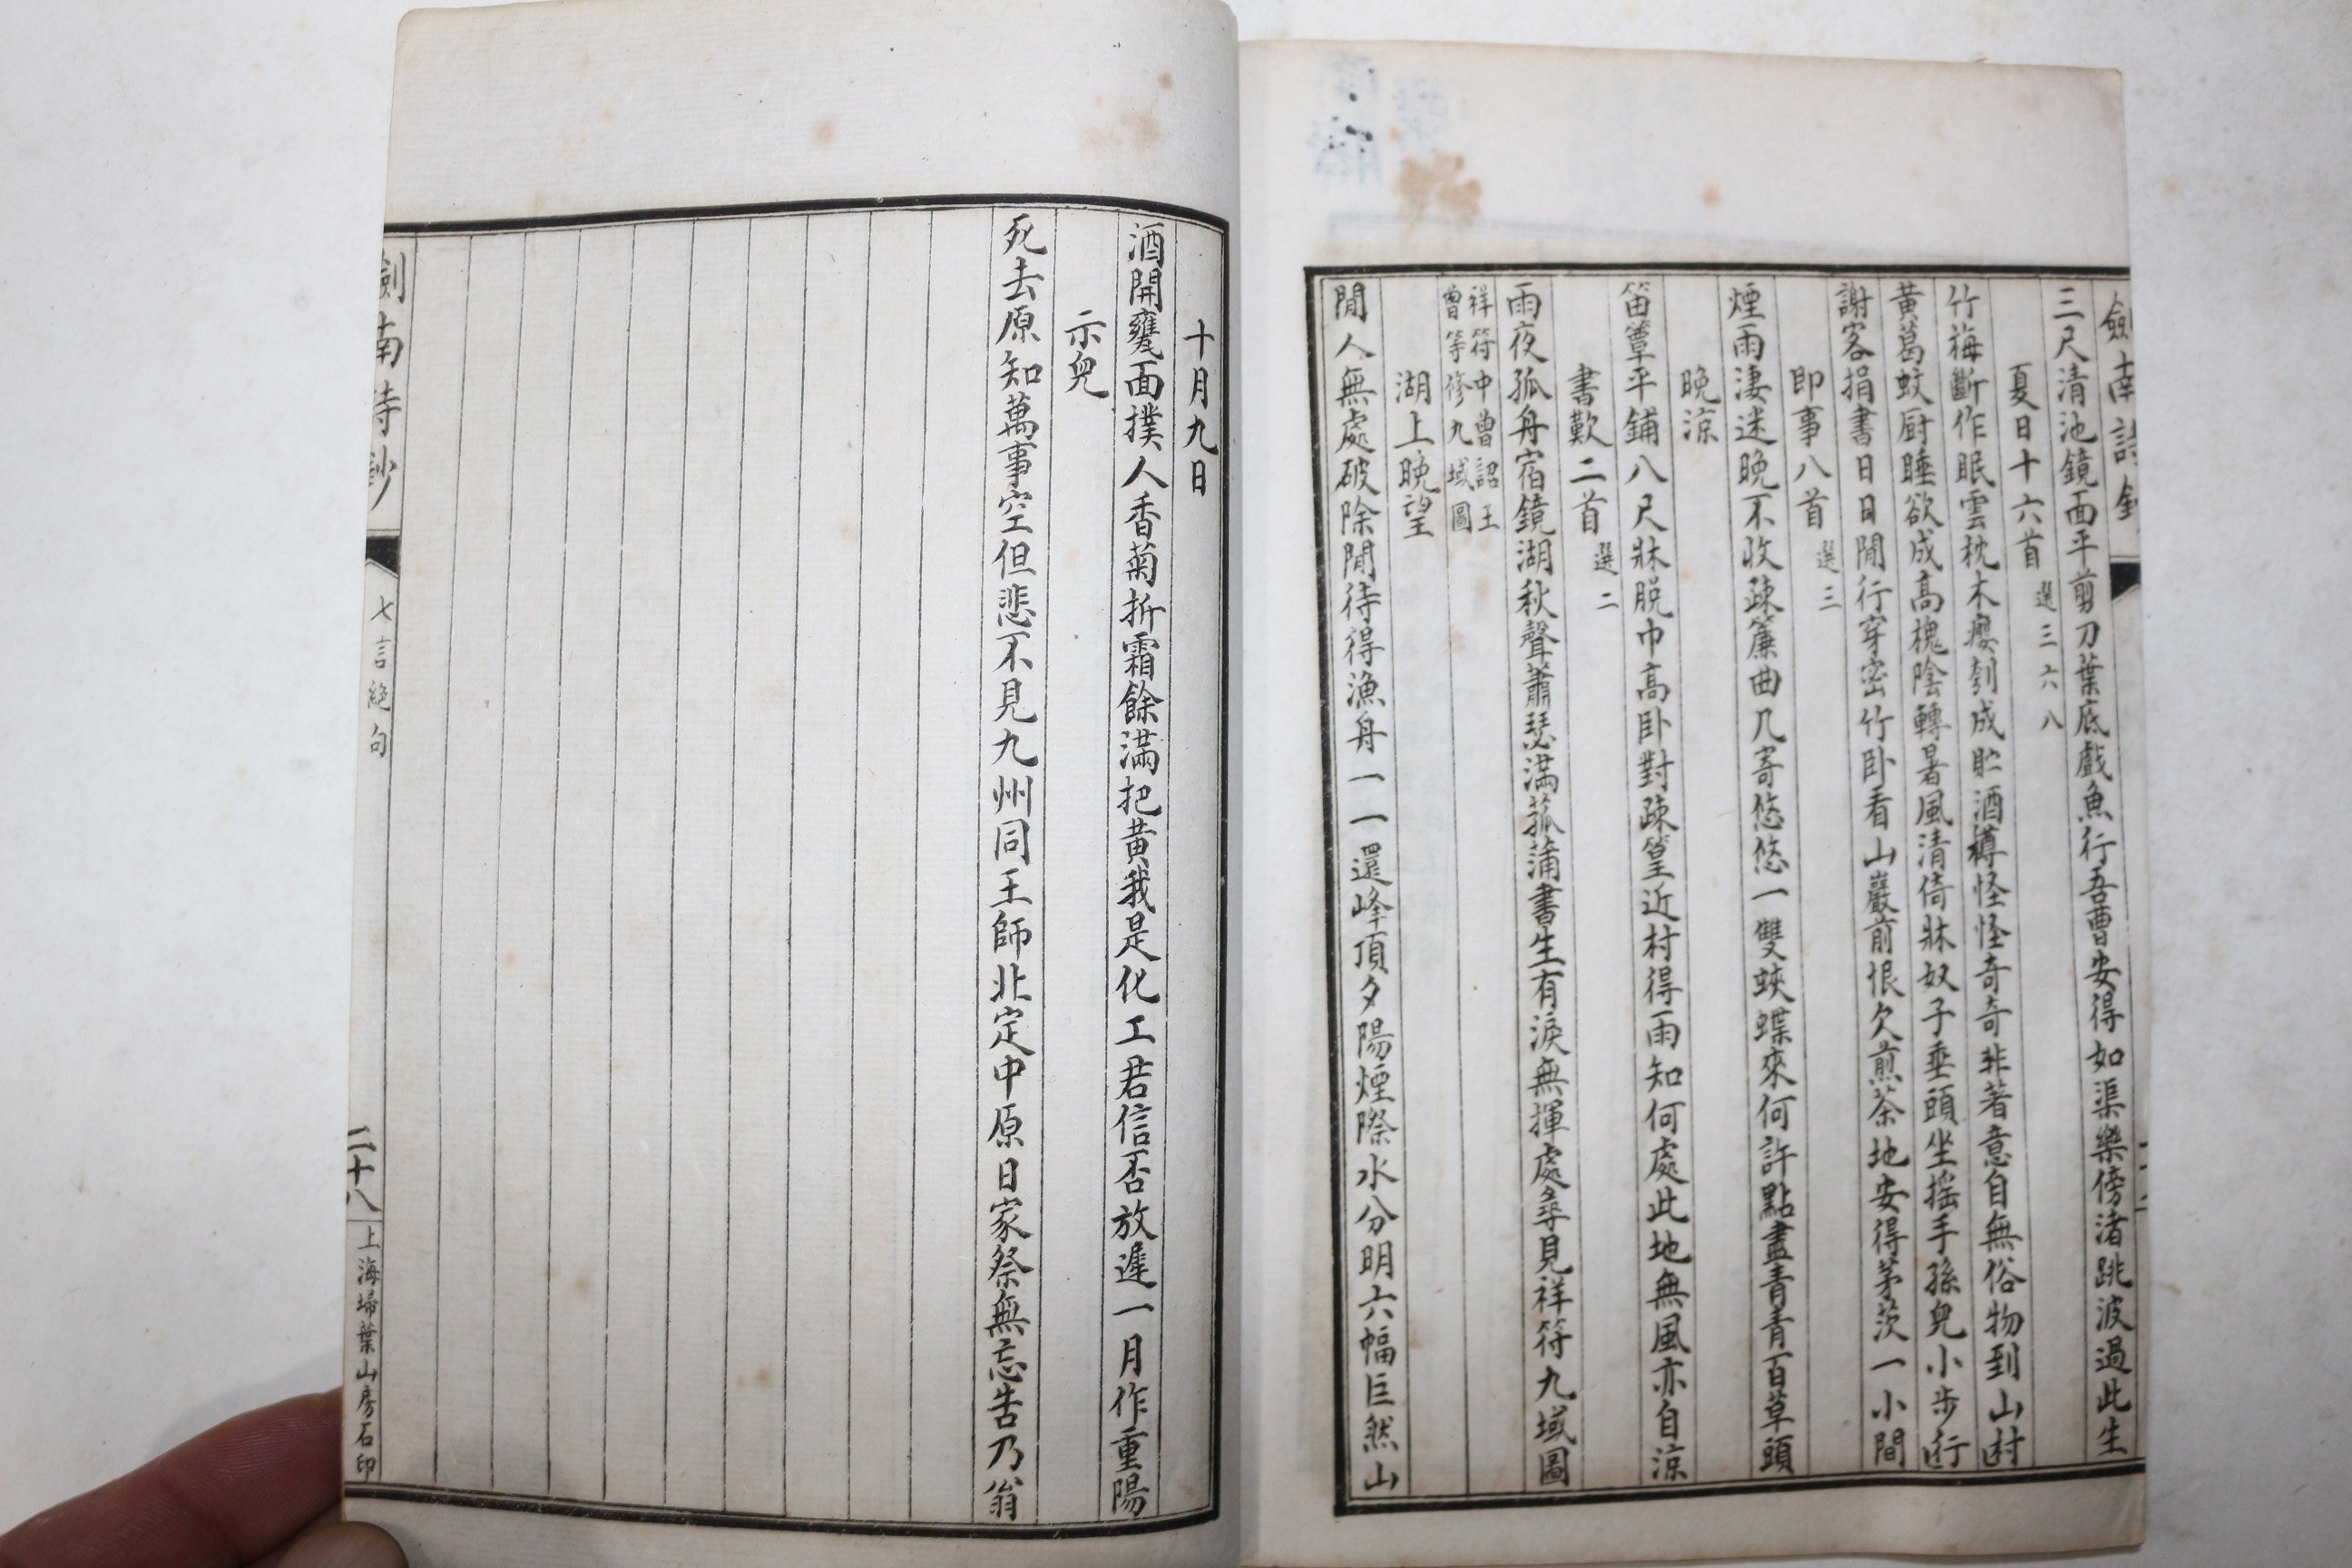 劍南詩鈔
三尺清池鏡面平剪刀葉底戲魚行吾曹安得如渠樂傍渚跳波過此生
夏日十六首 選三六八
竹梅斷作眠雲枕木癭刳成貯酒樽怪怪奇奇非著意自無俗物到山村
黃葛蚊厨睡欲成高槐陰轉暑風清倚牀奴子垂頭坐搖手孫兒小步行
謝客捐書日日閒行穿密竹卧看山巖前恨欠煎茶地安得茅茨一小間
即事八首 選三
煙雨淒迷晚不收疎簾曲几寄悠悠一雙蛺蝶來何許點盡青青百草頭
晚涼
笛簟平鋪八尺牀脱巾高卧對疎篁近村得雨知何處此地無風亦自涼
書歎二首 選二
雨夜孤舟宿鏡湖秋聲蕭瑟滿菰蒲書生有淚無揮處尋見祥符九域圖
祥符中曾詔王
曾等修九域圖
湖上晚望
閒人無處破除閒待得漁舟一一還峰頂夕陽煙際水分明六幅巨然山
十月九日
酒開甕面撲人香菊折霜餘滿把黃我是化工君信否放遲一月作重陽
示兒
死去原知萬事空但悲不見九州同王師北定中原日家祭無忘告乃翁
劍南詩鈔
七言絕句
二十八
上海埽葉山房石印